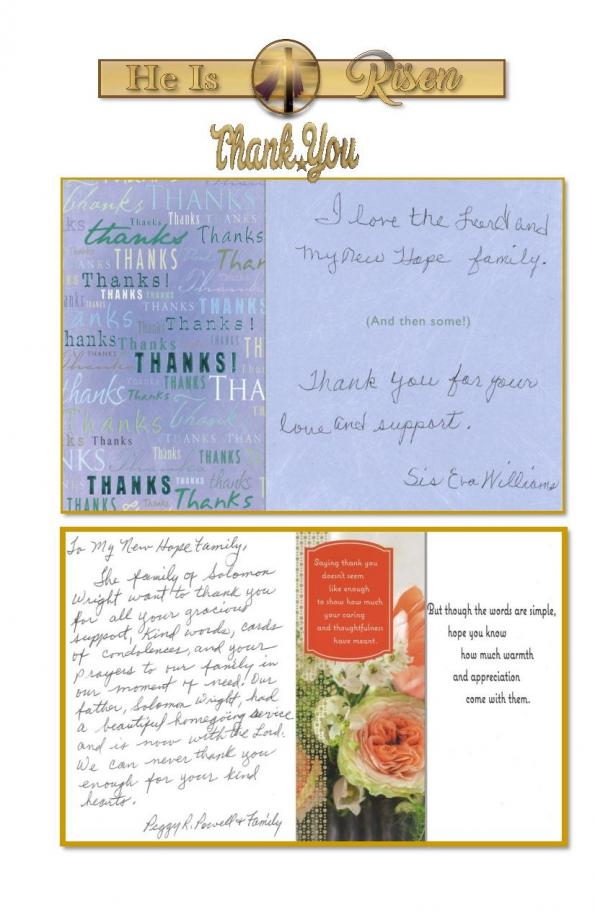 He Is Risen
Thank You
thanks
Thanks
THANKS
Thanks!
THANKS
Thanks
Thanks!
THANKS!
Thanks
THANKS
Thanks
THANKS
I love the Lord and
My New Hope family.
(And then some!)
Thank you for your
love and support.
Sis Eva Williams
To My New Hope Family,
The family of Solomon
Wright want to thank you
for all your gracious
support, kind words, cards
of condolences, and your
prayers to our family in
our moment of need. Our
father, Solomon Wright, had
a beautiful homegoing service
and is now with the Lord.
We can never thank you
enough for your kind
hearts.
Peggy R. Powell & Family
Saying thank you
doesn't seem
like enough
to show how much
your caring
and thoughtfulness
have meant.
But though the words are simple,
hope you know
how much warmth
and appreciation
come with them.